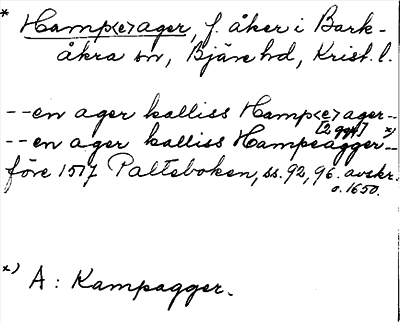 * Hamp<e>ager, f. åker i Bark-
åkra sn, Bjäre hd, Krist. l.
--en ager kalliss Hamp<e>ager--
[2 ggr]
--en ager kalliss Hampeagger-- x)
före 1517 Palteboken, ss. 92, 96. avskr.
o. 1650.
x) A: Kampagger.